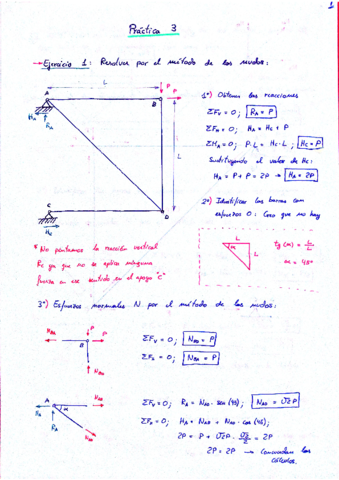 1
Práctica 3
→ Ejercicio 1: Resolver por el método de los nudos:
L
P P
A
B
HA
RA
L
C
D
HC
1º) Obtener las reacciones
ΣFV = 0; RA = P
ΣFH = 0; HA = HC + P
ΣMA = 0; P·L = HC·L; HC = P
Sustituyendo el valor de HC:
HA = P + P = 2P → HA = 2P
2º) Identificar las barras con
esfuerzo 0: Creo que no hay
L
α
L
tg(α) = L/L
α = 45º
* No pontamos la reacción vertical
RC ya que no se aplica ninguna
fuerza en ese sentido en el apoyo "C"
3º) Esfuerzos normales N por el método de los nudos:
P
P
NBA
B
NBD
ΣFV = 0; NBD = P
ΣFH = 0; NBA = P
A
NAB
HA
RA
α
NAD
ΣFV = 0; RA = NAD · sen(45); NAD = √2P
ΣFH = 0; HA = NAB + NAD · cos(45);
2P = P + √2P · √2/2 = 2P
2P = 2P → Concuerdan los
cálculos.